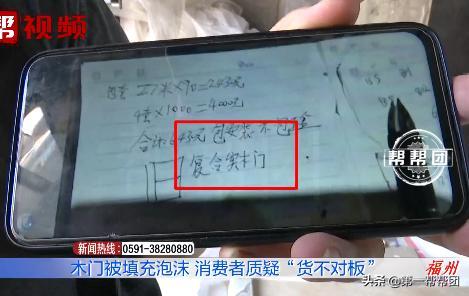 帮视频
27米×90=2430元
4套×1000=4000元
合计:6430元 包安装 不包
复合实木门
帮帮团
新闻热线:0591-38280880
木门被填充泡沫 消费者质疑“货不对板”
福州
头条 @第一帮帮团